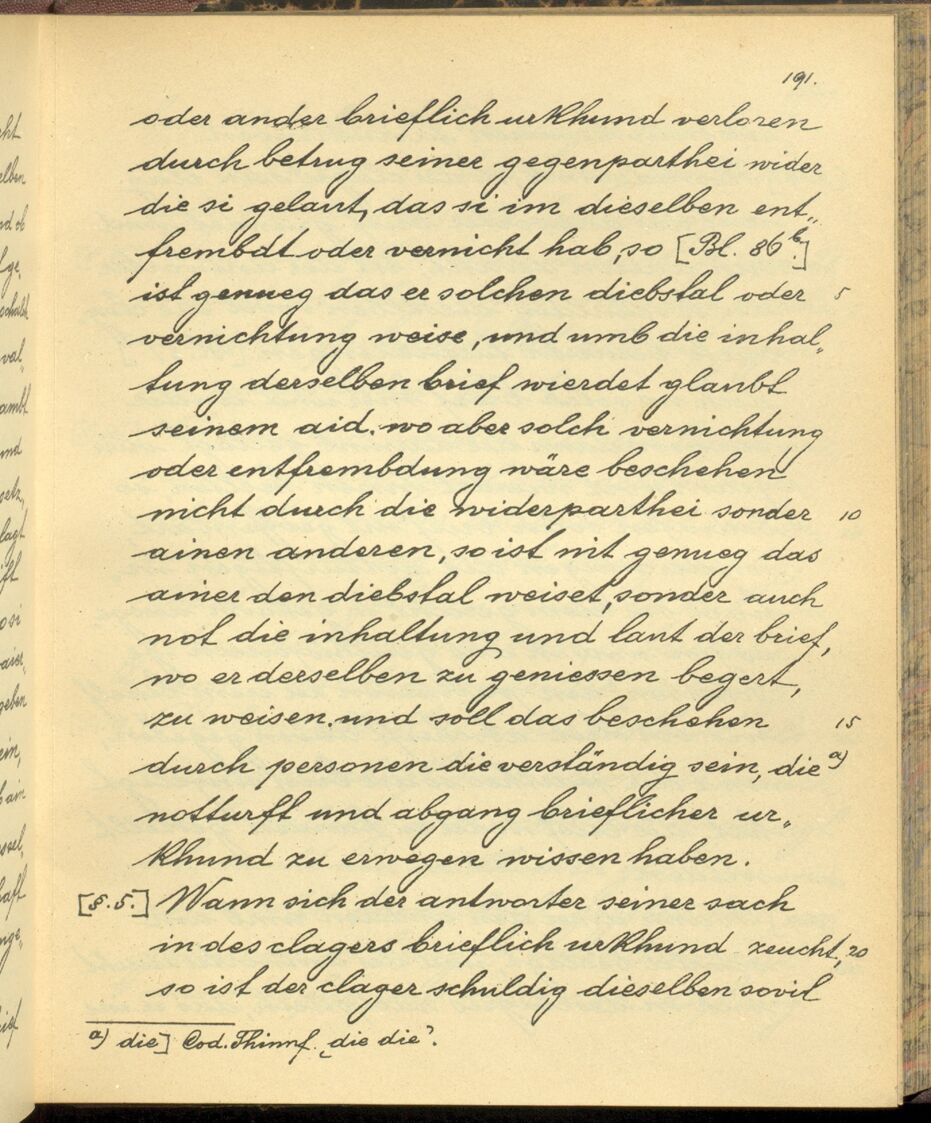 191.
oder ander brieflich urkhund verloren
durch betrug seiner gegenparthei wider
die si gelaut, das si im dieselben ent„
frembdt oder vernicht hab, so [Bl. 86b.]
ist genueg das er solchen diebstal oder 5
vernichtung weise, und umb die inhal„
tung derselben brief wierdet glaubt
seinem aid. wo aber solch vernichtung
oder entfrembdung wäre beschehen
nicht durch die widerparthei sonder 10
ainen anderen, so ist nit genueg das
ainer den diebstal weiset, sonder auch
not die inhaltung und laut der brief,
wo er derselben zu geniessen begert,
zu weisen. und soll das beschehen 15
durch personen die verständig sein, die a)
notturft und abgang brieflicher ur„
khund zu erwegen wissen haben.
[§. 5.] Wann sich der antworter seiner sach
in des clagers brieflich urkhund zeucht, 20
so ist der clager schuldig dieselben sovil
a) die] Cod. Thinnf. „die die“.